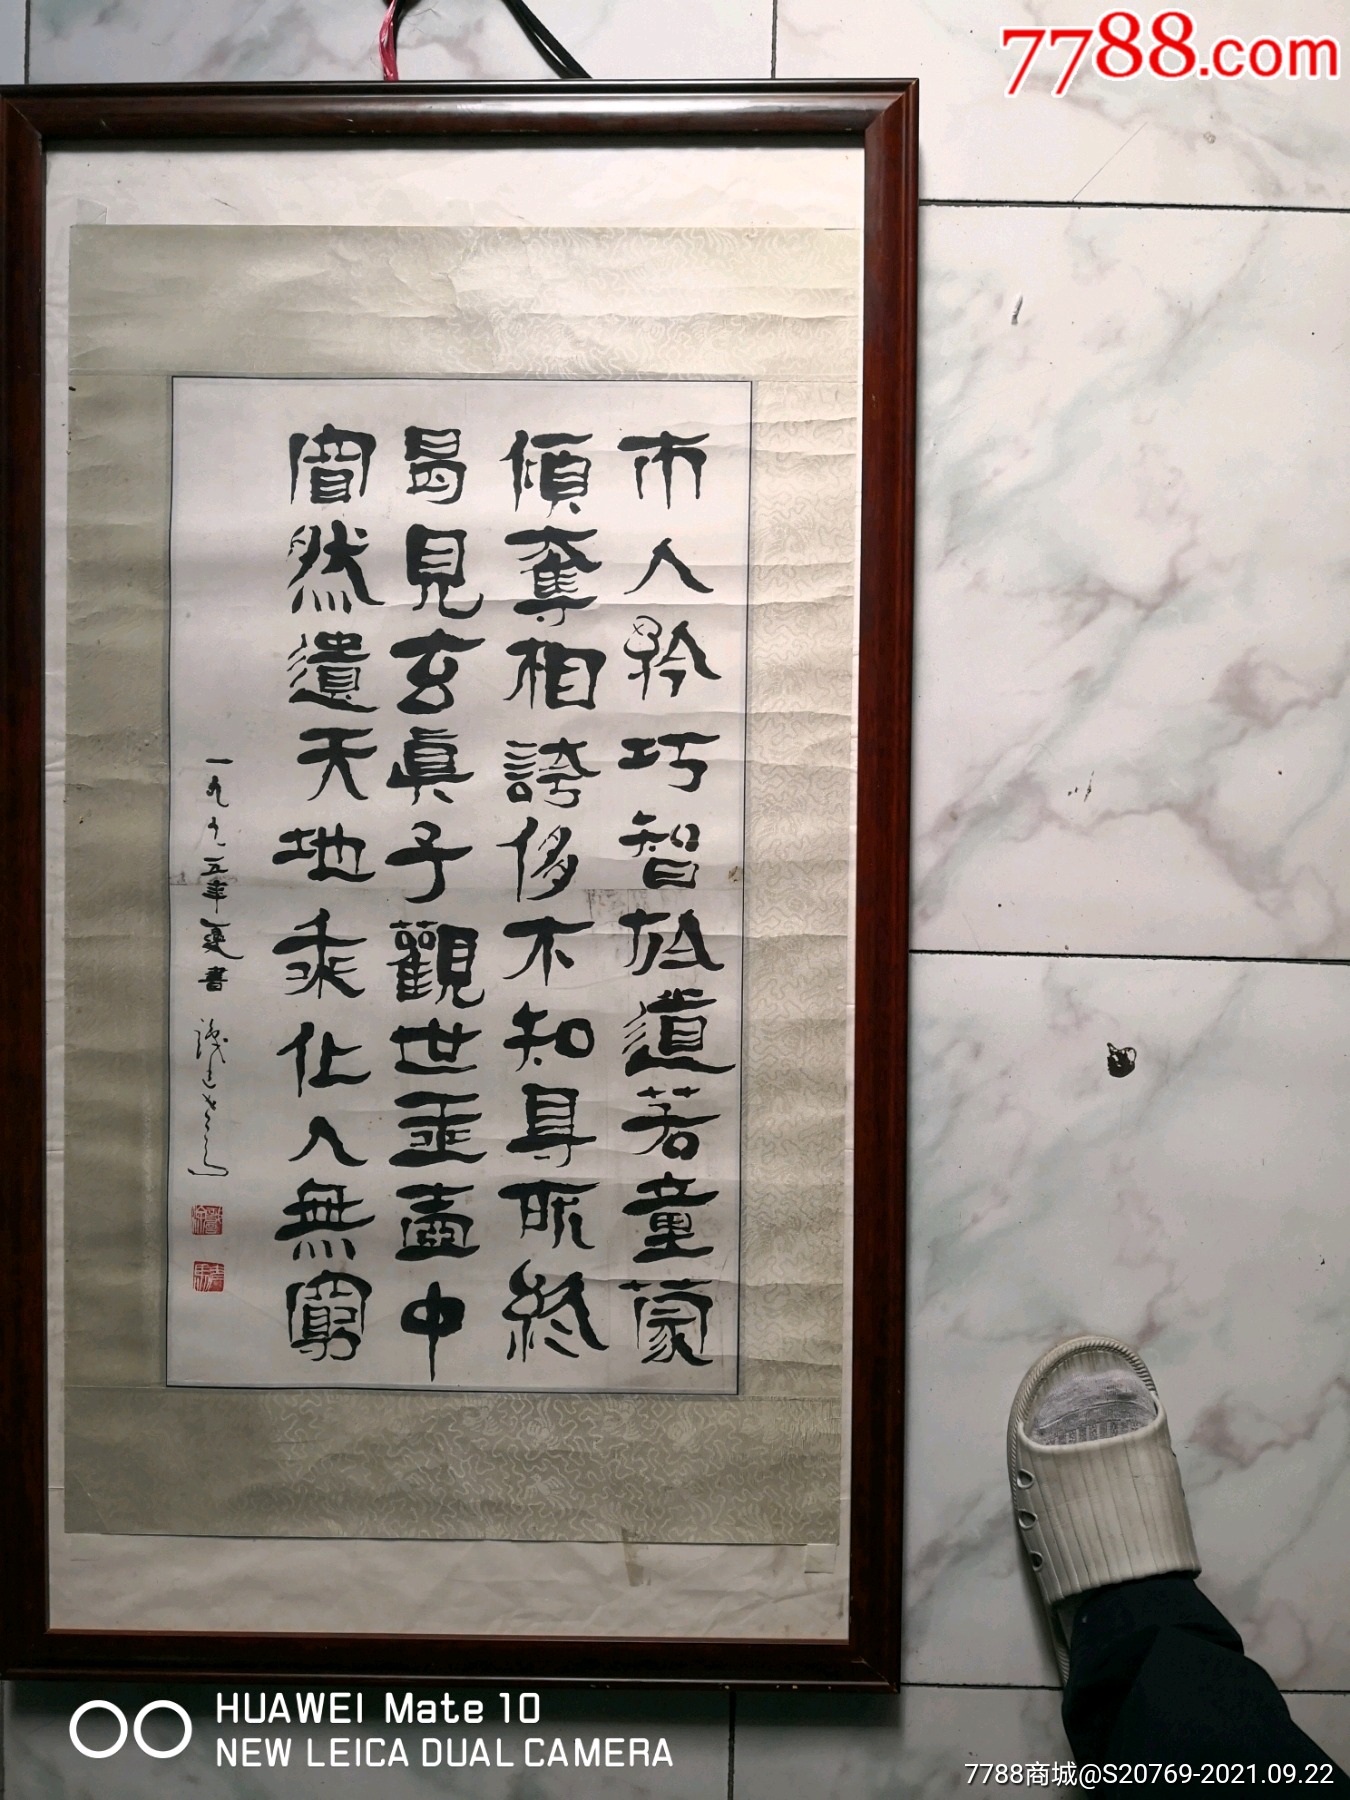 7788.com
市人矜巧智於道若童蒙
傾奪相誇侈不知身所終
曷見玄真子觀世玉壺中
窅然遺天地乘化入無窮
一九九五年夏書
HUAWEI Mate 10
NEW LEICA DUAL CAMERA
7788商城@S20769-2021.09.22